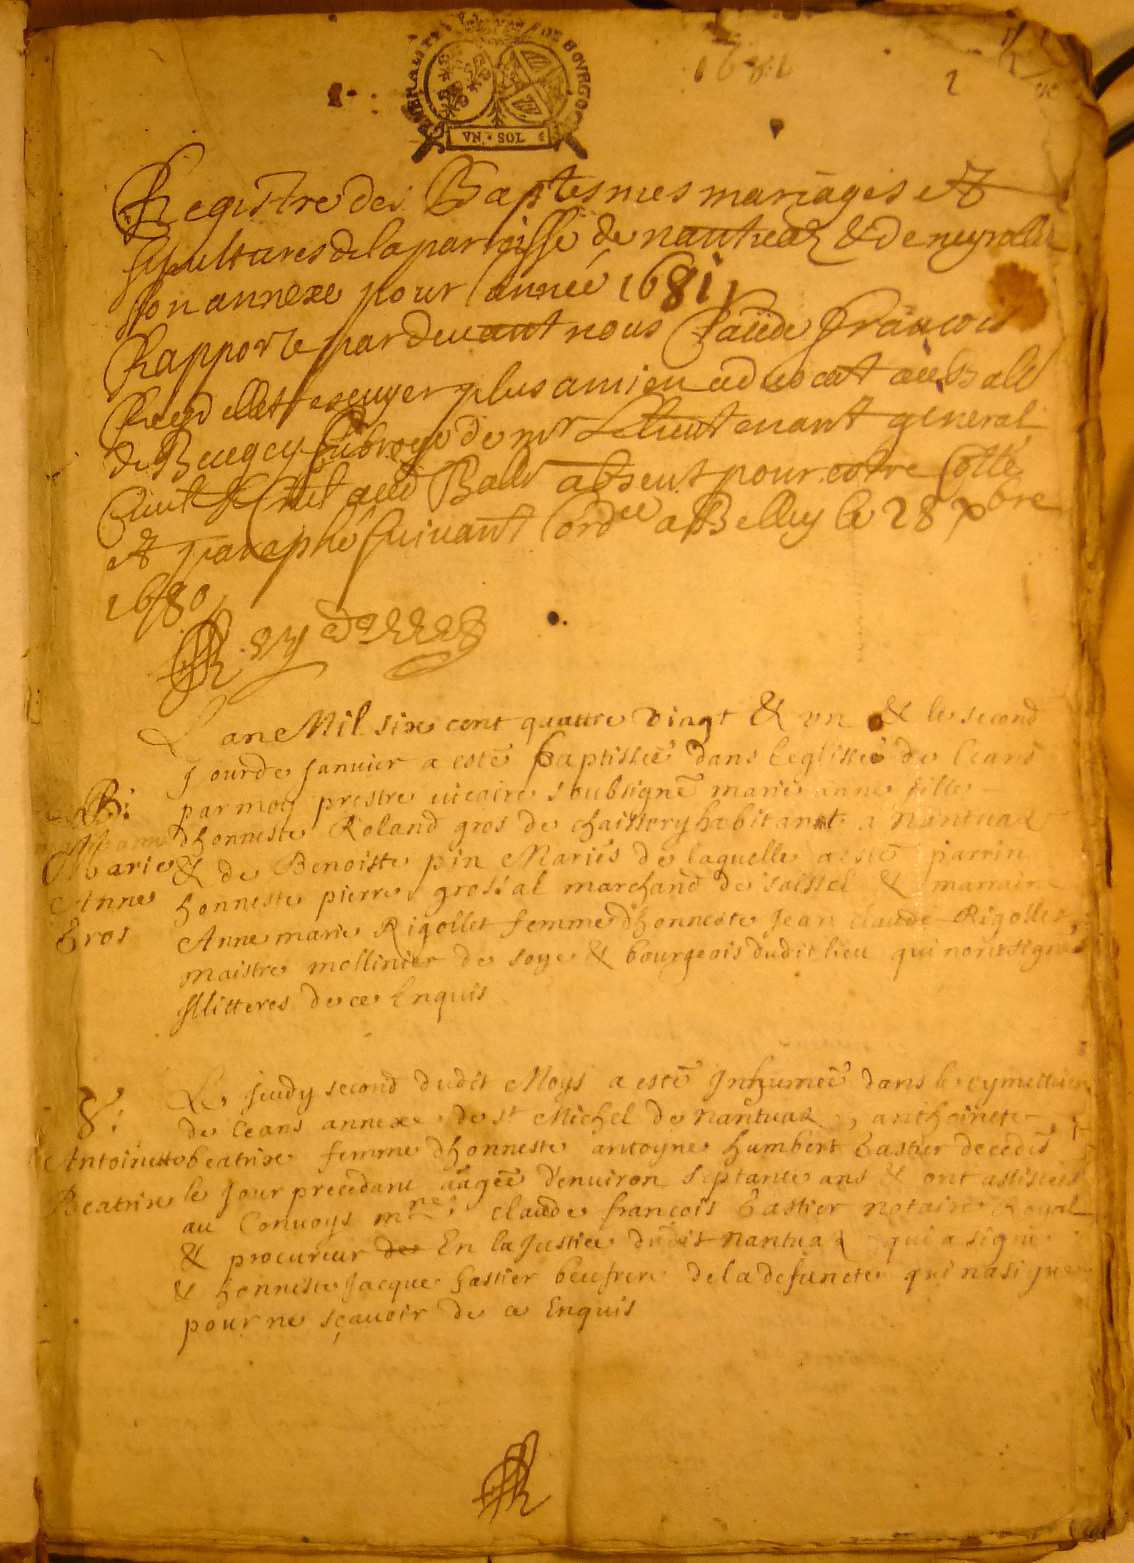 GENERALITE DE BOVRGOGNE
VN · SOL
1681
1
Registre des Baptesmes mariages et
sepultures de la parroisse de nantuaz & de neyrolle
son annexe pour lannée 1681
Rapporte pardeuant nous Claude François
escuyer plus antien aduocat au Balle
de Beugey de mr Le lieutenant general
Ciuil & Crim aud Balle absent pour estre Cotté
et paraphé suiuant lordce a Belley le 28 xbre
1680
L an Mil six cent quattre vingt & un & le second
jour de januier a esté baptissée dans leglisse de ceans
par moy prestre uicaire soubsigné marie anne fille
B:
dhonneste Roland gros de chaissery habitant a Nantuaz
Marie
& de Benoiste pin Mariés de laquelle a esté parrin
Anne
honneste pierre grossat marchand de saissel & marraine
Gros
Anne marie Rigollet femme dhonneste Jean claude Rigollet
maistre mollinier de soye & bourgeois dudit lieu qui nont signé
Illitteres de ce Enquis
Le jeudy second dudit Moys a esté Inhumée dans le cymettiere
S:
de ceans annexe de st Michel de Nantuaz, anthoinette
Antoinette
beatrix femme dhonneste antoyne humbert Castier decedée
Beatrix
le Jour precedant aagée denuiron septante ans & ont assistés
au Conuoys mre claude françois Castier notaire Royal
& procureur En la Justice dudit Nantuaz qui a signé
& honneste Jacque hastier beufrere de la defuncte qui na signé
pour ne sçauoir de ce Enquis